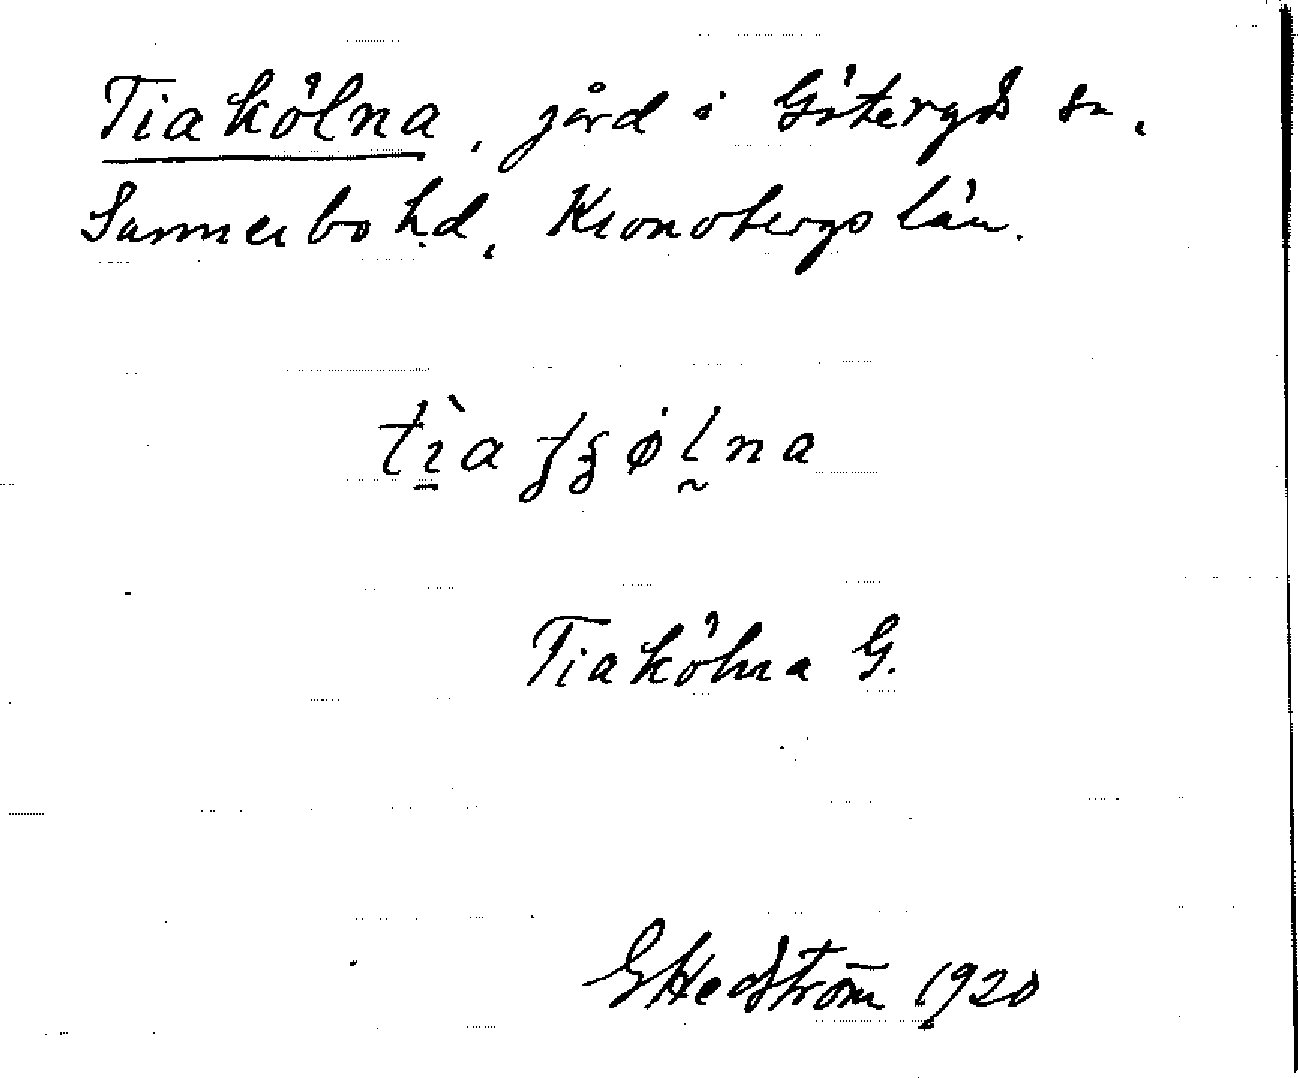 Tiakölna, gård i Göteryds sn,
Sunnerbo hd, Kronobergs län.
Tiakölna G.
G Hedström 1920